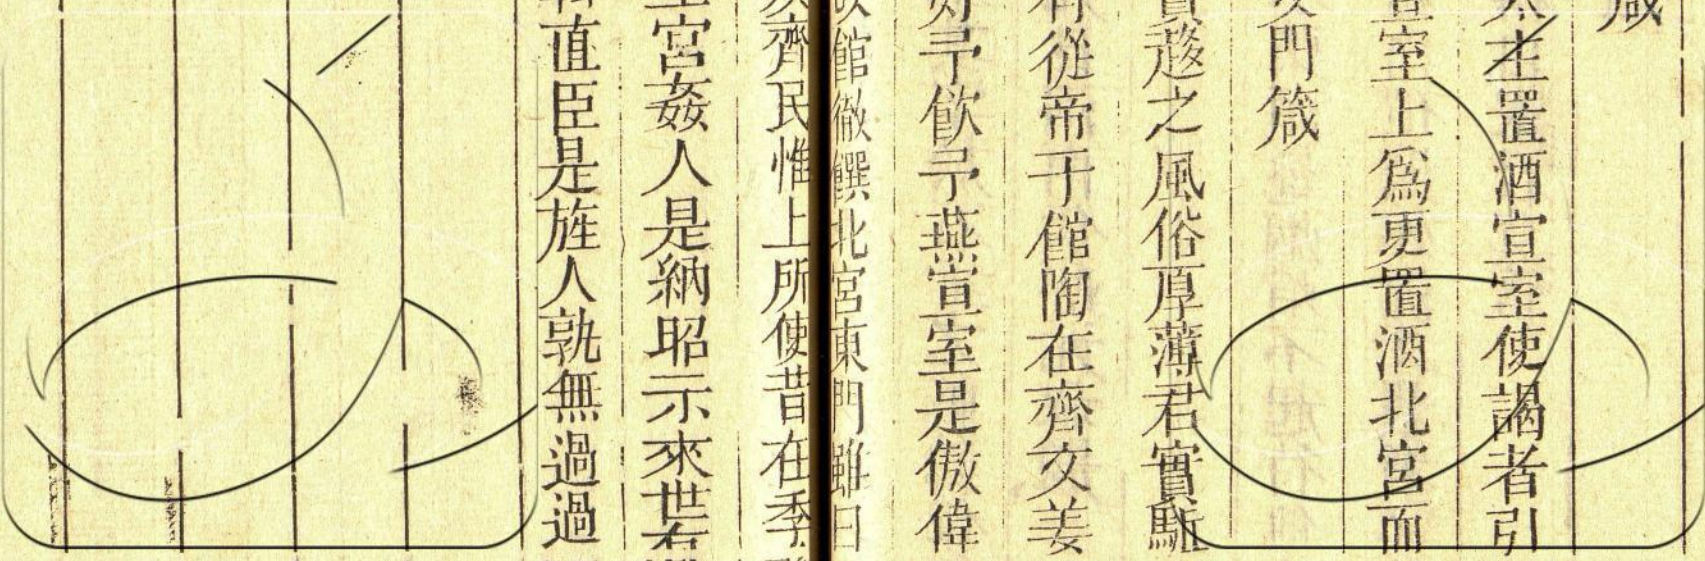 箴
主置酒宣室使謁者引
室上爲更置酒北宮而
門箴
趍之風俗厚薄君實
從帝于館陶在齊文姜
予飲予燕宣室是傲偉
館徹饌北宮東門雖曰
齊民惟上所使昔在季
宮姦人是納昭示來世
直臣是旌人孰無過過